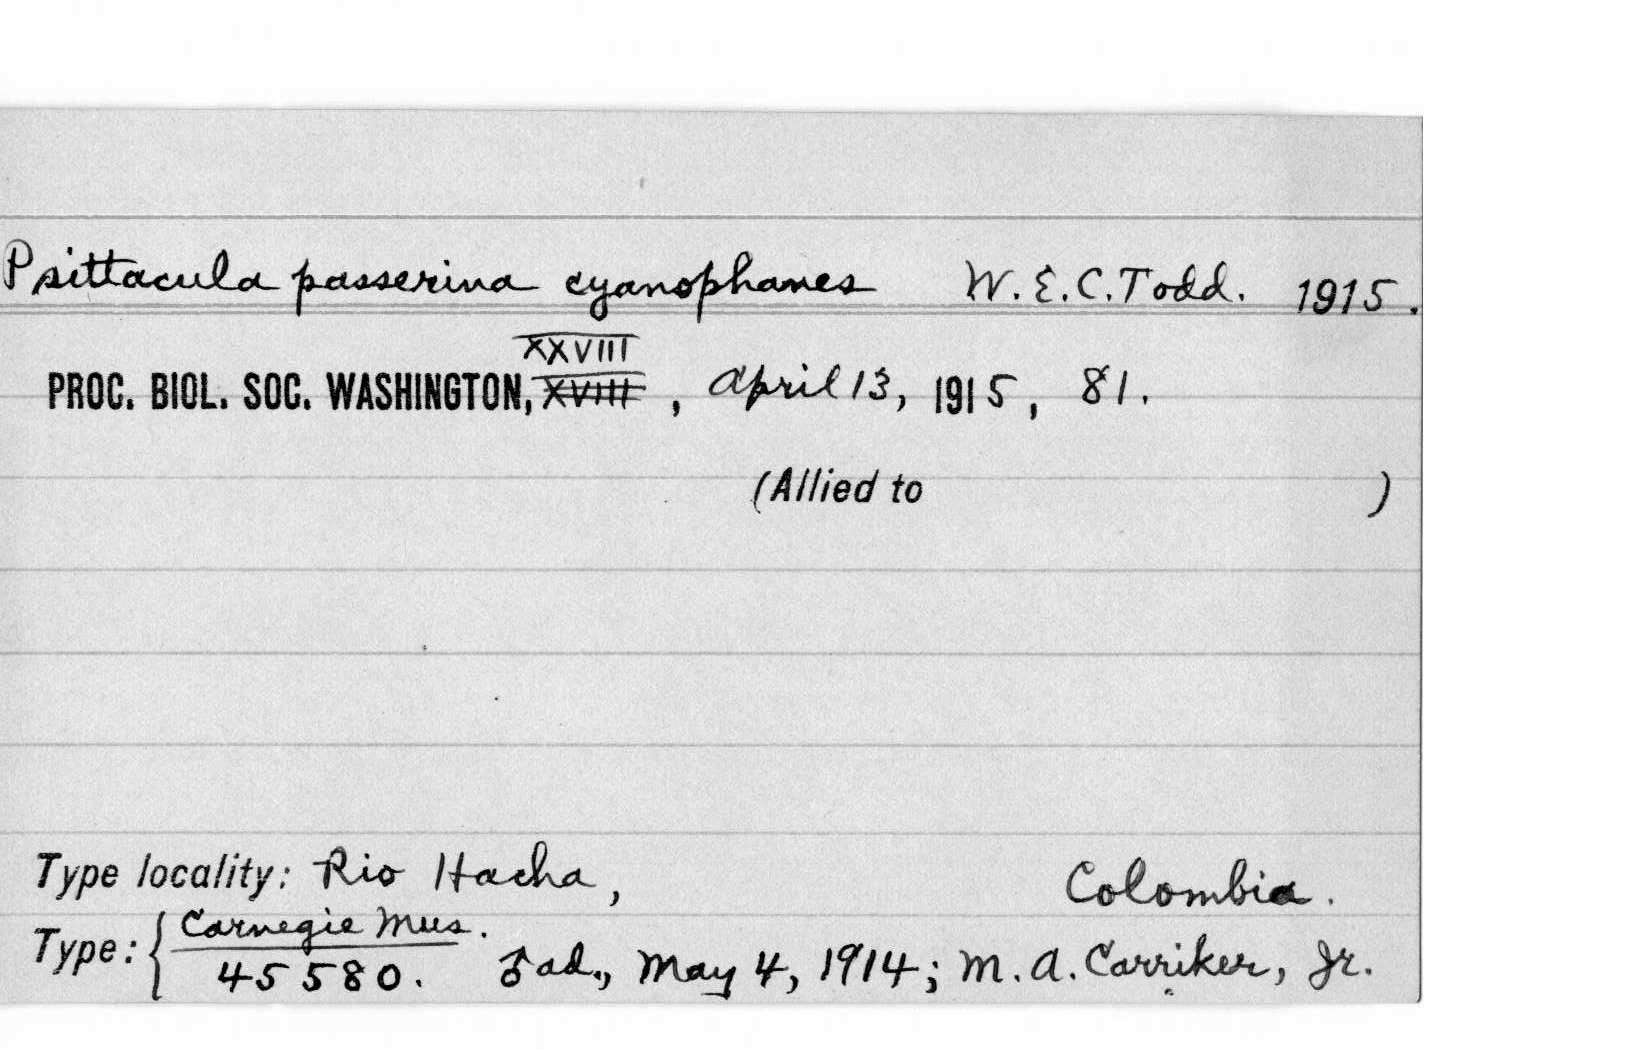 Psittacula passerina cyanophanes W. E. C. Todd. 1915.
XXVIII
PROC. BIOL. SOC. WASHINGTON, XVIII, April 13, 1915, 81.
(Allied to )
Type locality: Rio Hacha, Colombia.
Type: { Carnegie Mus.
45580. ♂ ad., May 4, 1914; M. A. Carriker, Jr.